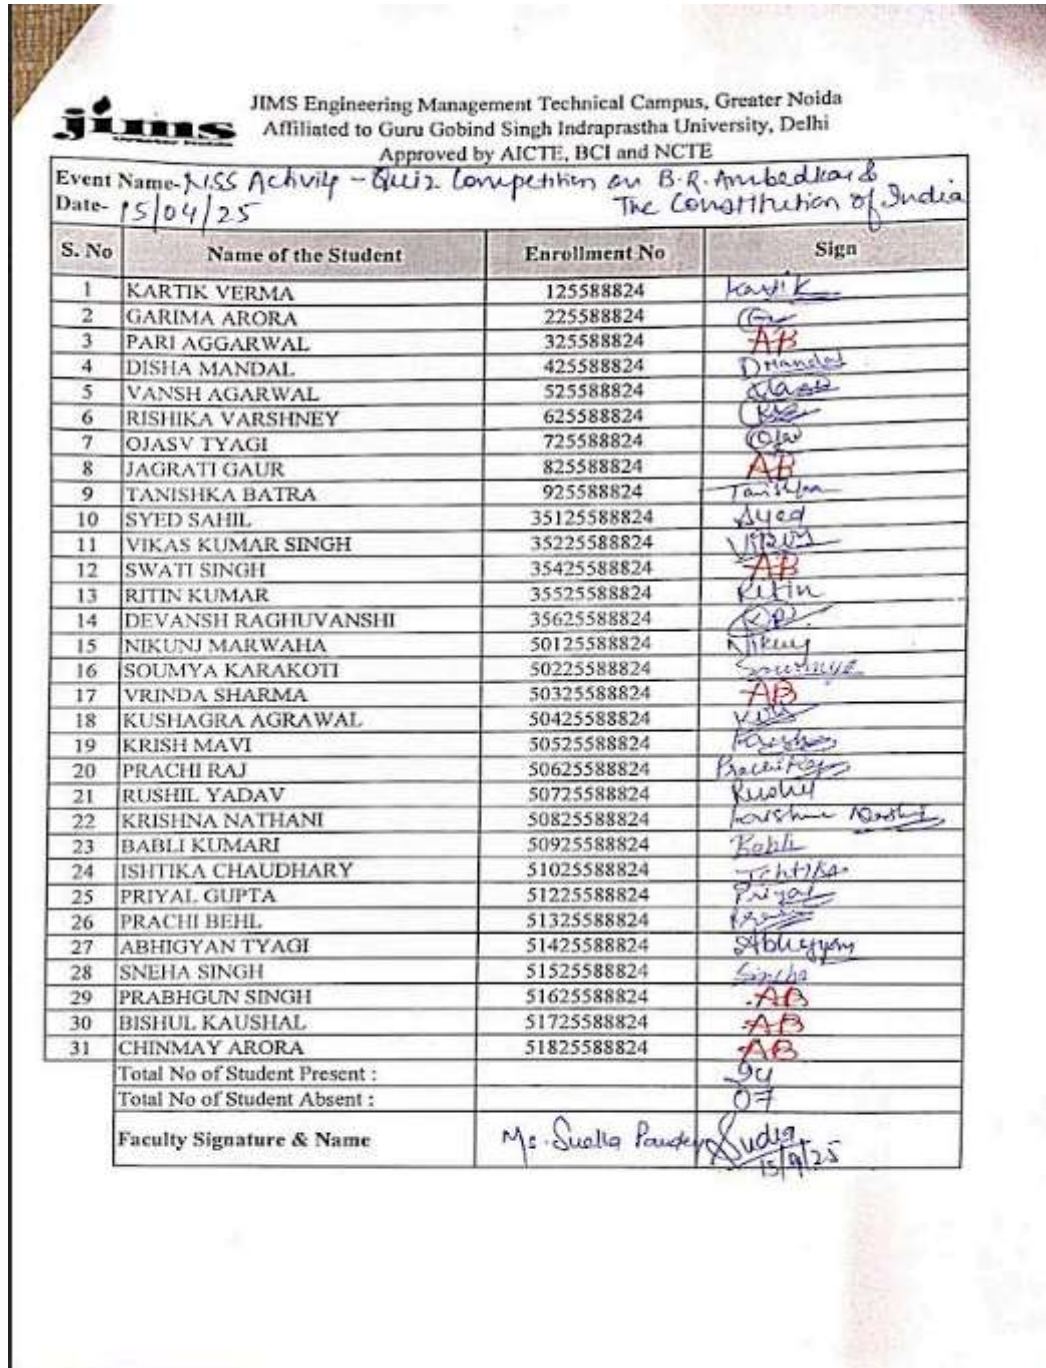 jims
JIMS Engineering Management Technical Campus, Greater Noida
Affiliated to Guru Gobind Singh Indraprastha University, Delhi
Approved by AICTE, BCI and NCTE
Event Name- Activity - Quiz Competition on B.R. Ambedkar &
The Constitution of India
Date- 15/04/25
S. No Name of the Student Enrollment No Sign
1 KARTIK VERMA 125588824 Kartik
2 GARIMA ARORA 225588824
3 PARI AGGARWAL 325588824 AB
4 DISHA MANDAL 425588824 DMandal
5 VANSH AGARWAL 525588824
6 RISHIKA VARSHNEY 625588824
7 OJASV TYAGI 725588824
8 JAGRATI GAUR 825588824 AB
9 TANISHKA BATRA 925588824 Tanishka
10 SYED SAHIL 35125588824 Syed
11 VIKAS KUMAR SINGH 35225588824
12 SWATI SINGH 35425588824 AB
13 RITIN KUMAR 35525588824 Ritin
14 DEVANSH RAGHUVANSHI 35625588824
15 NIKUNJ MARWAHA 50125588824 Nikunj
16 SOUMYA KARAKOTI 50225588824 Soumya
17 VRINDA SHARMA 50325588824 AB
18 KUSHAGRA AGRAWAL 50425588824
19 KRISH MAVI 50525588824
20 PRACHI RAJ 50625588824 Prachi Raj
21 RUSHIL YADAV 50725588824 Rushil
22 KRISHNA NATHANI 50825588824
23 BABLI KUMARI 50925588824 Babli
24 ISHTIKA CHAUDHARY 51025588824 Ishtika
25 PRIYAL GUPTA 51225588824 Priyal
26 PRACHI BEHL 51325588824
27 ABHIGYAN TYAGI 51425588824 Abhigyan
28 SNEHA SINGH 51525588824
29 PRABHGUN SINGH 51625588824 AB
30 BISHUL KAUSHAL 51725588824 AB
31 CHINMAY ARORA 51825588824 AB
Total No of Student Present : 24
Total No of Student Absent : 07
Faculty Signature & Name Ms. Pandey